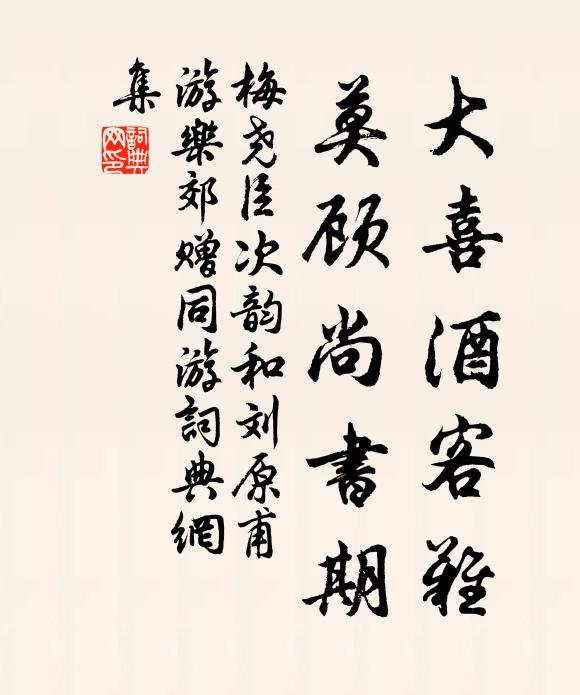 大喜酒客難
莫顾尚書期
梅尧臣次韵和刘原甫
游樂郊赠同游詞典網
集
詞典网印